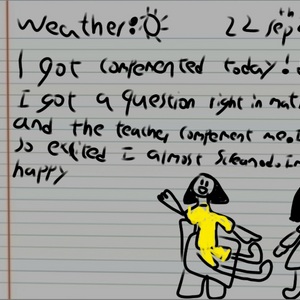 Weather: 22 sep th
I got complemented today!
I got a question right in mat
and the teacher complement me.
so excited I almost screamed. im
happy